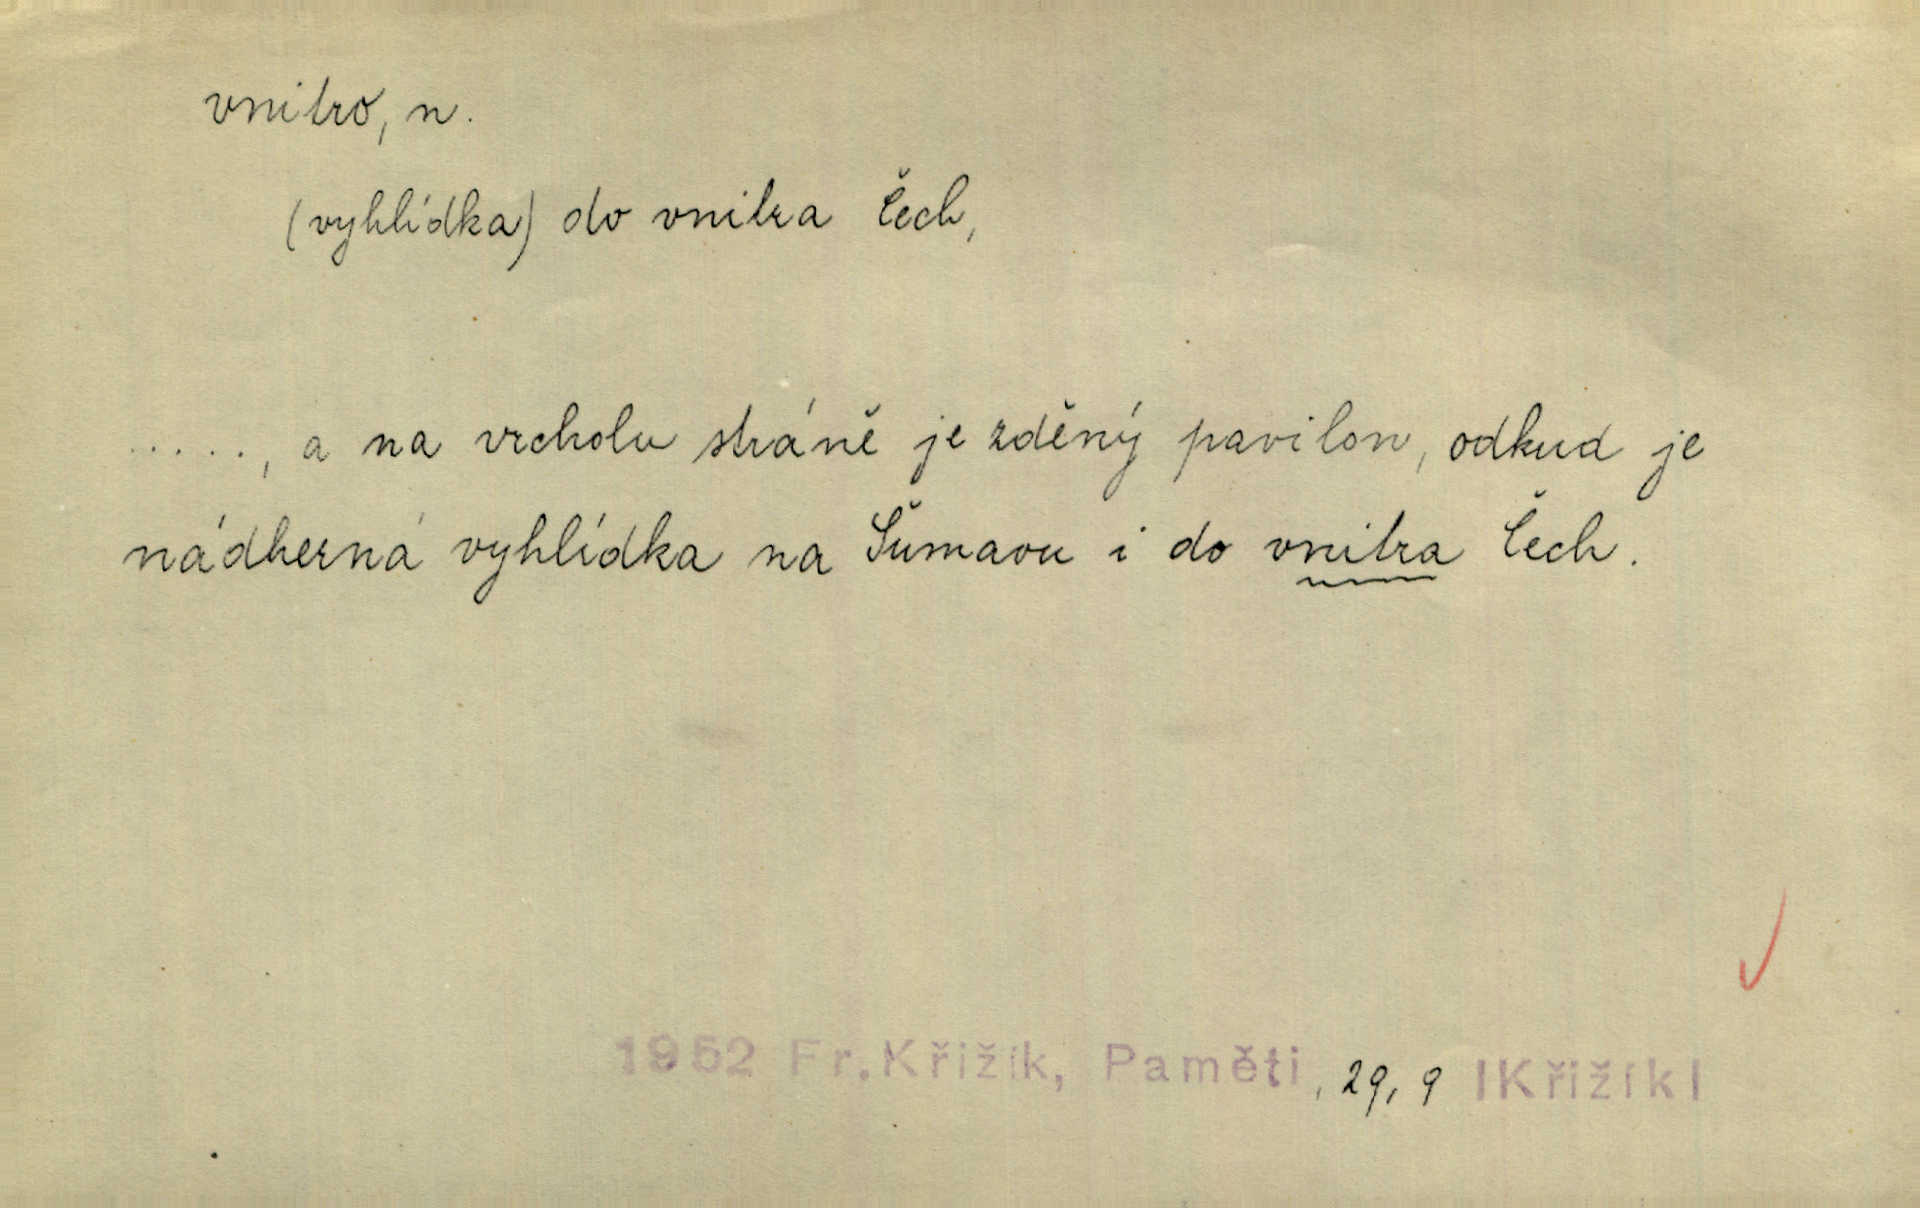 vnitro, n.
(vyhlídka) do vnitra Čech,
....., a na vrcholu stráně je zděný pavilon, odkud je
nádherná vyhlídka na Šumavu i do vnitra Čech.
1952 Fr. Křižík, Paměti, 29, 9 |Křižík|